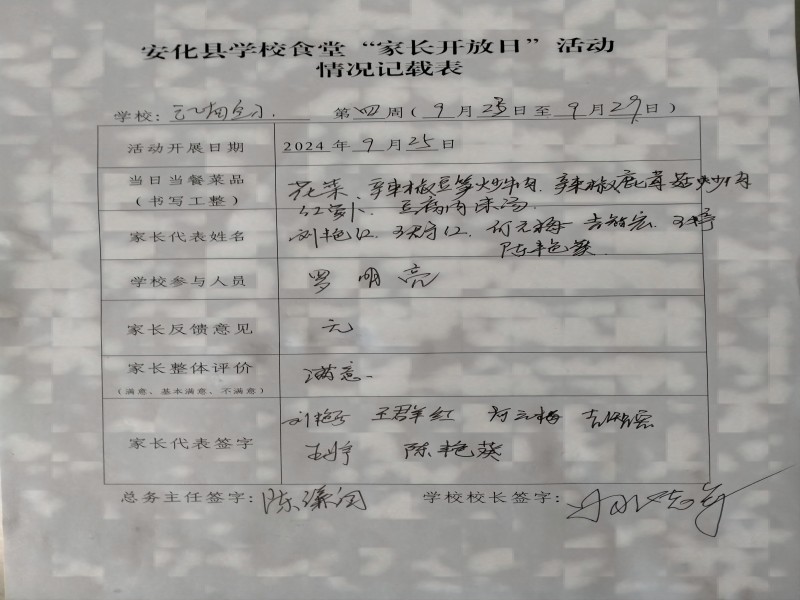 安化县学校食堂“家长开放日”活动
情况记载表
学校： 第四周（9月23日至9月29日）
活动开展日期 2024年9月25日
当日当餐菜品 花菜、辣椒豆笋炒牛肉、辣椒 炒肉
（书写工整） 红萝卜、豆腐肉沫汤
家长代表姓名 刘艳红、 何元梅 王婷
陈艳葵
学校参与人员 罗明亮
家长反馈意见 无
家长整体评价 满意
（满意、基本满意、不满意）
刘艳红 王群红 何元梅
家长代表签字
王婷 陈艳葵
总务主任签字： 学校校长签字：